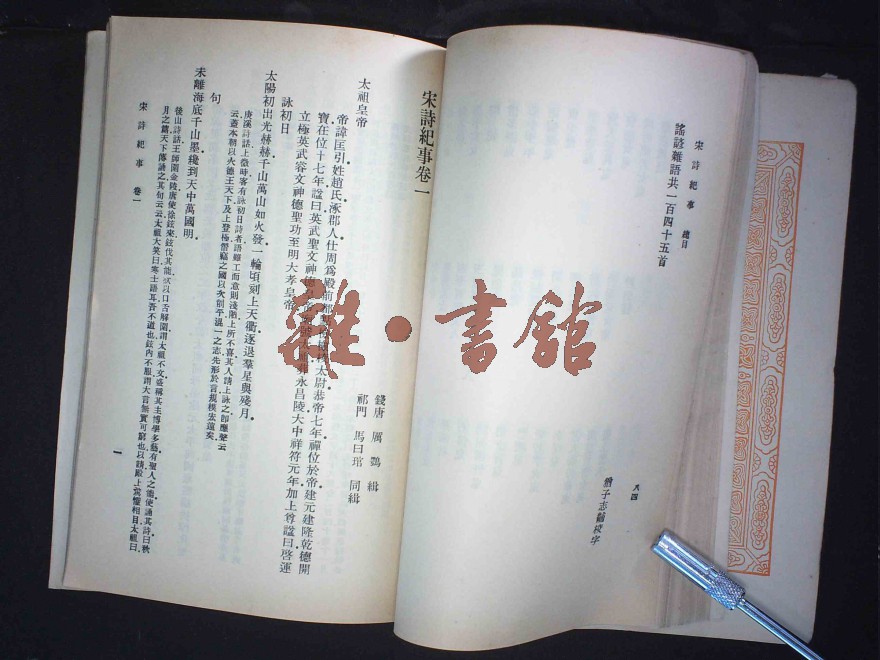 宋詩紀事 總目
謠諺雜語共一百四十五首
八四
宋詩紀事卷一
錢唐 厲鶚 緝
祁門 馬曰琯 同緝
太祖皇帝
帝諱匡引姓趙氏涿郡人仕周爲殿前都太尉恭帝七年禪位於帝建元建隆乾德開
寶在位十七年諡曰英武聖文神德永昌陵大中祥符元年加上尊諡曰啓運
立極英武睿文神德聖功至明大孝皇帝
詠初日
太陽初出光赫赫.千山萬山如火發.一輪頃刻上天衢.逐退羣星與殘月.
庚溪詩話.上微時.客有詠初日詩者.語雖工而意則淺陋.上所不喜.其人請上詠之.卽應聲云云.
蓋本朝以火德王天下.及上登極.僭竊之國.以次削平.混一之志.先形於言.規模宏遠矣.
句
未離海底千山墨.纔到天中萬國明.
後山詩話.王師圍金陵.唐使徐鉉來.鉉伐其能.欲以口舌解圍.謂太祖不文.盛稱其主博學多藝.有聖人之能.使誦其詩.曰秋
月之篇.天下傳誦之.其句云云.太祖大笑曰.寒士語耳.吾不道也.鉉內不服.謂大言無實.可窮也.以請.殿上驚懼相目.太祖曰.
宋詩紀事 卷一
一
雜·書館